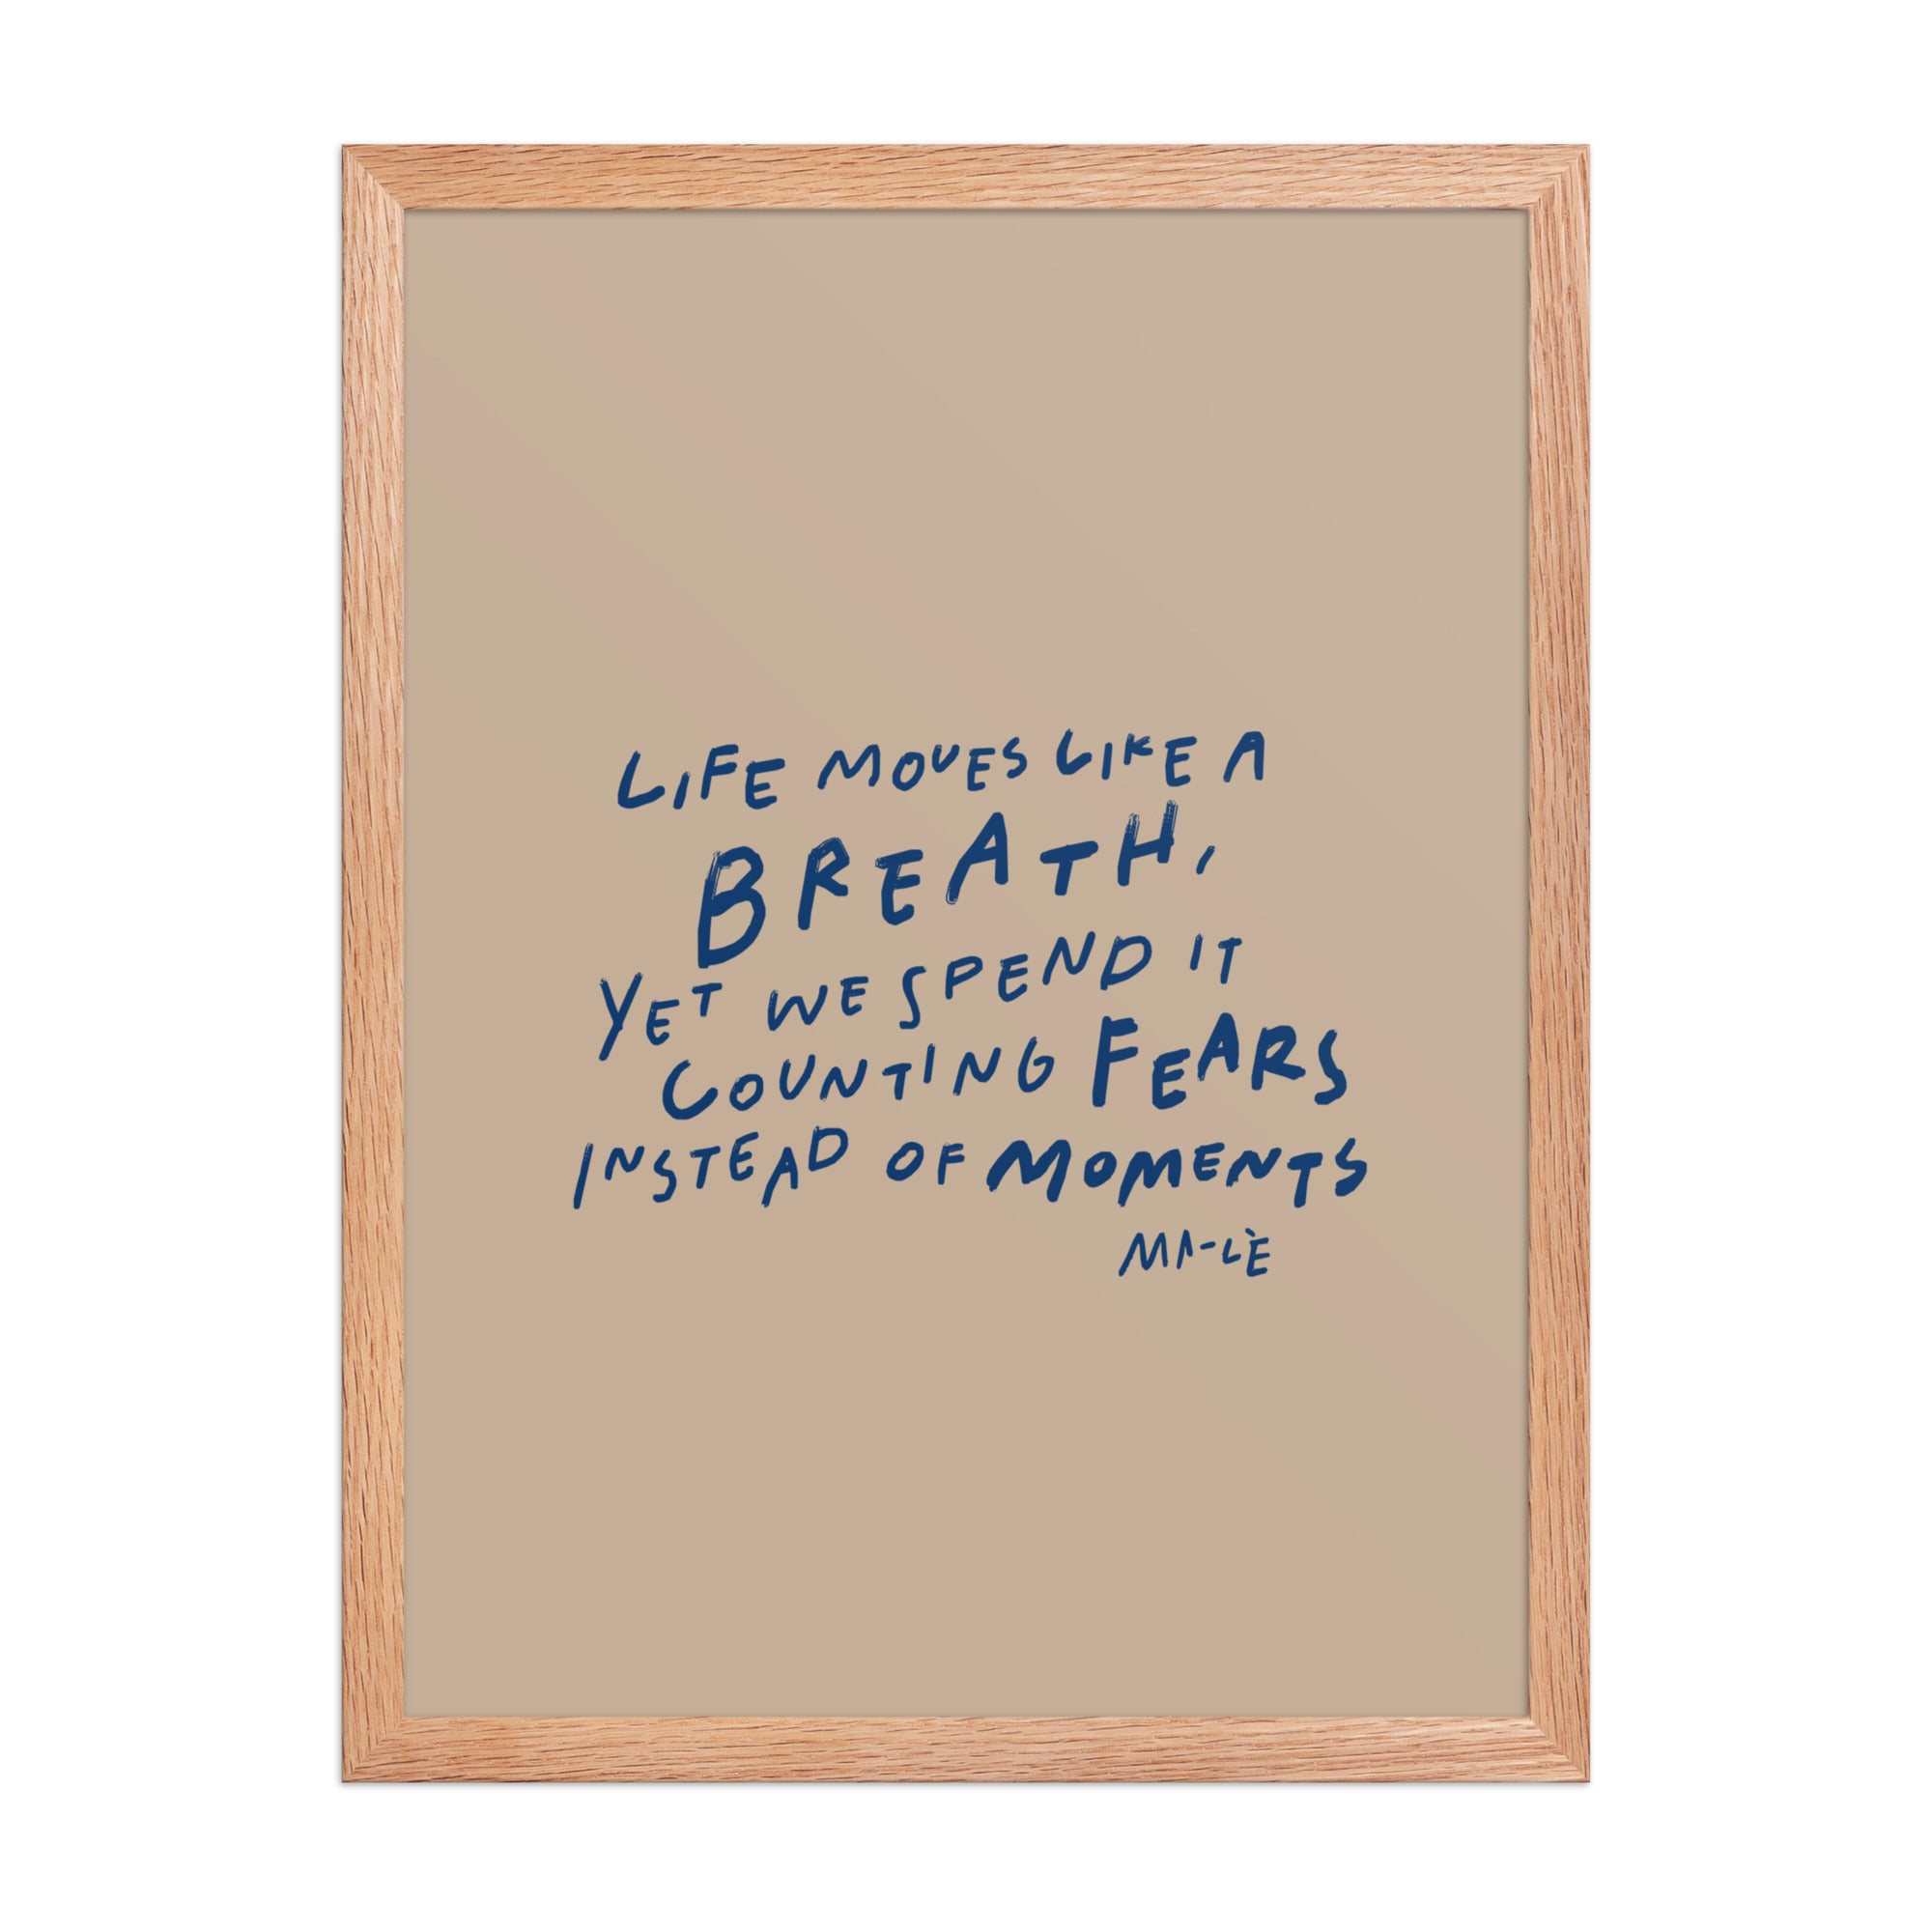 LIFE MOVES LIKE A
BREATH,
YET WE SPEND IT
COUNTING FEARS
INSTEAD OF MOMENTS
MA-LÈ